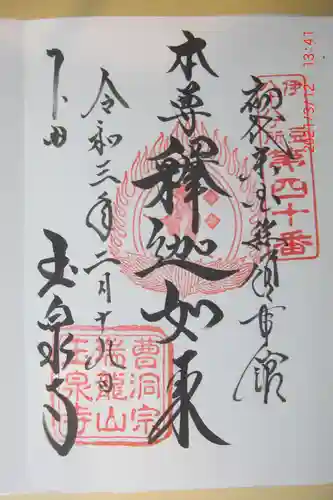 伊豆
第四十番
初代米国総領事館
本尊
釋迦如来
令和三年二月十九日
下田
玉泉寺
曹洞宗
瑞龍山
玉泉寺
2021/3/12 13:41